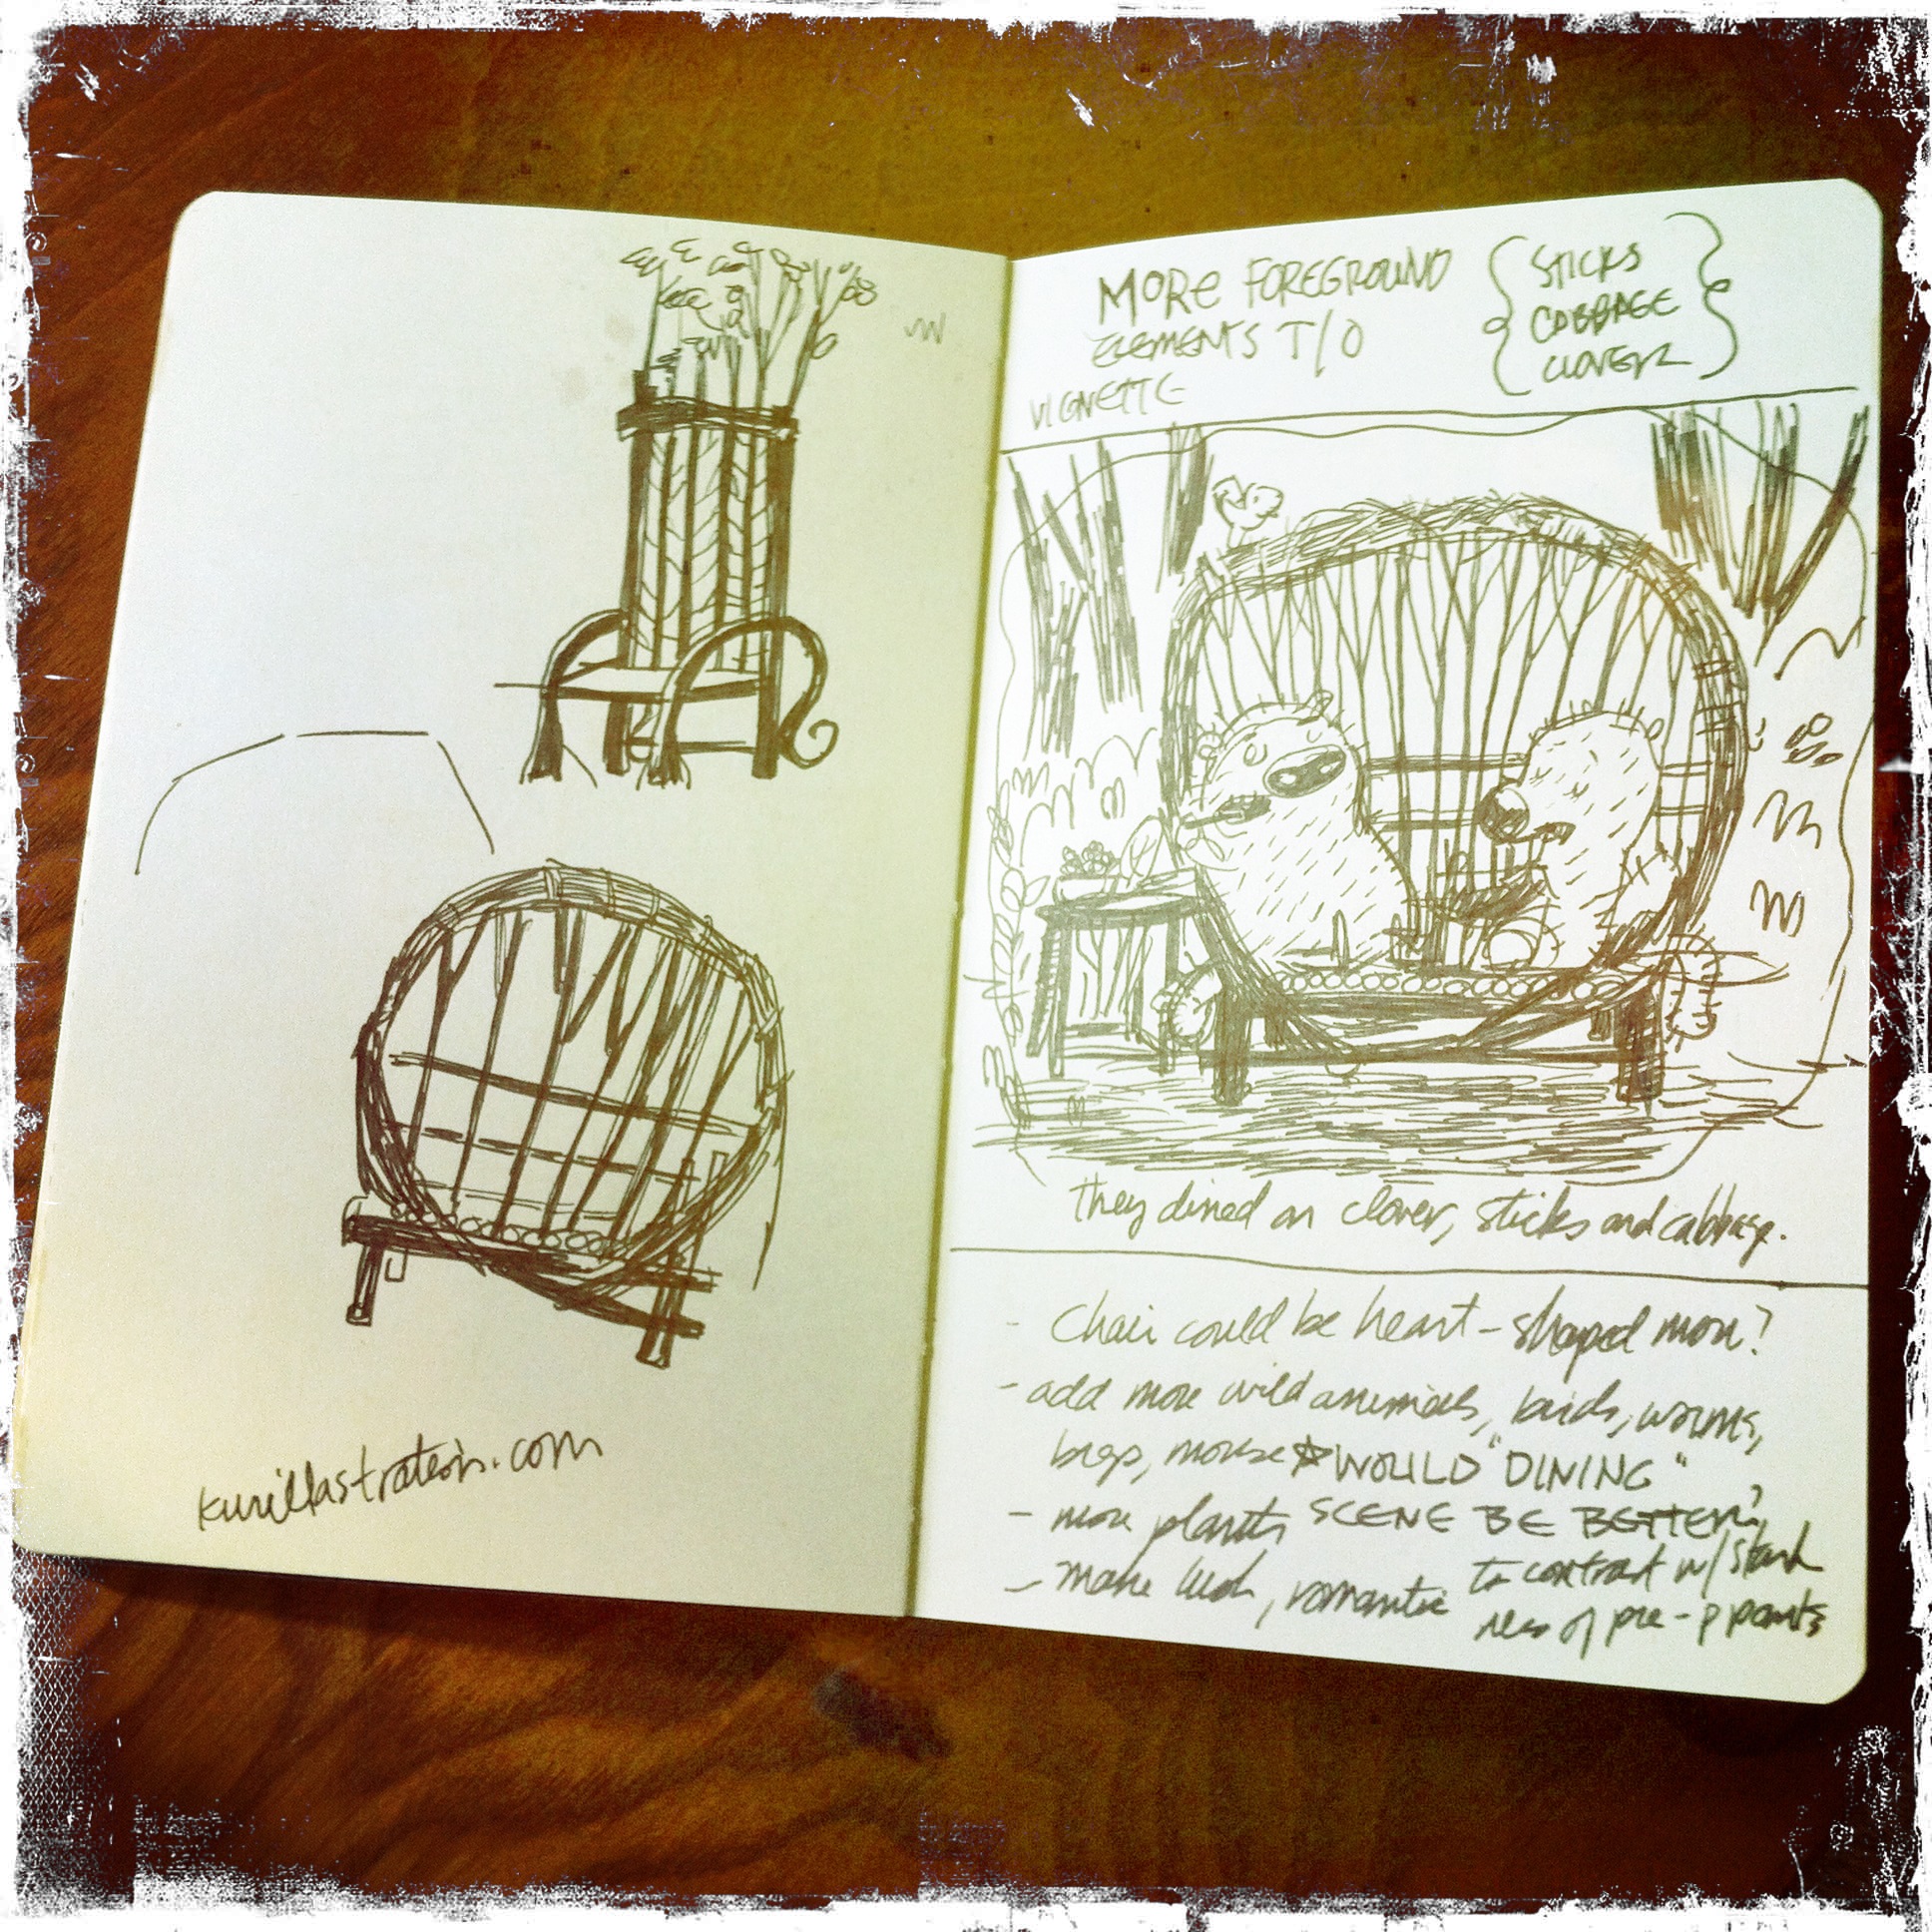 kurillastration.com
MORE FOREGROUND
ELEMENTS T/O
VIGNETTE
STICKS
CABBAGE
CLOVER
They dined on clover, sticks and cabbage.
- Chair could be heart-shaped more?
- add more wild animals, birds, worms,
bugs, mouse ☆ WOULD "DINING"
- more plants SCENE BE BETTER?
- make lush, romantic to contrast w/ stark
ness of pre-p pants